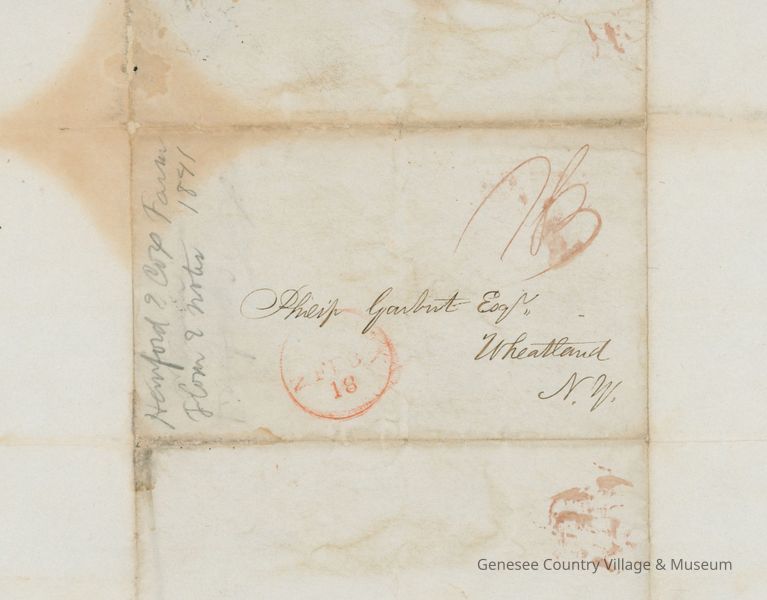 Hanford & Cox Farm
Flour & notes 1841
Philip Garbutt Esqr.
Wheatland
N. Y.
18
Genesee Country Village & Museum